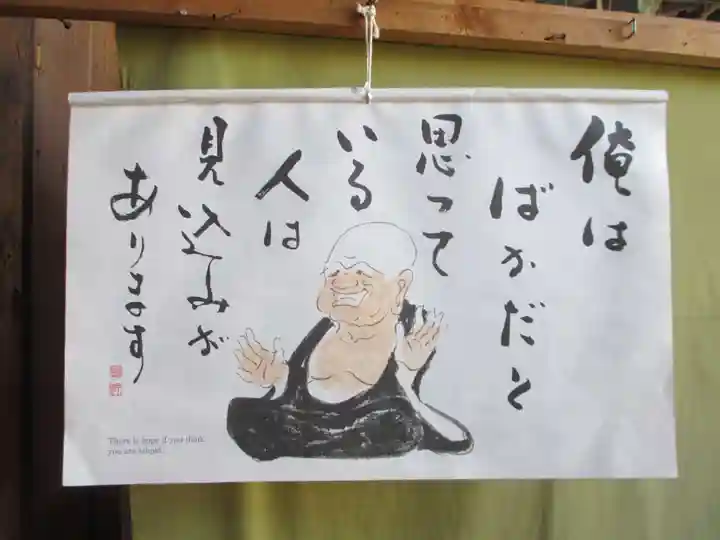 俺は
ばかだと
思って
いる
人は
見込みが
あります
There is hope if you think
you are stupid.